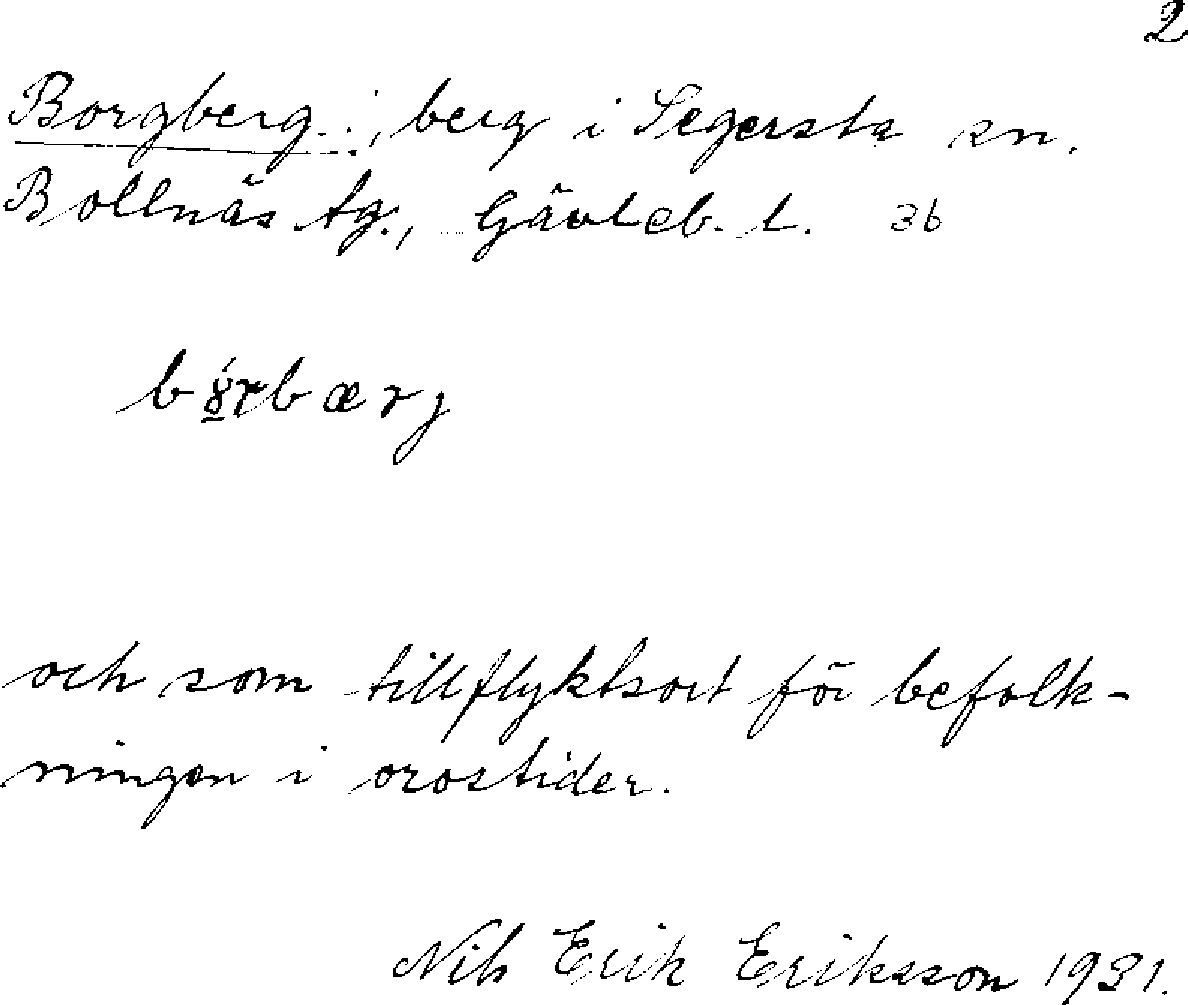 2
Borgberg, berg i Segersta sn.
Bollnäs tg., Gävleb. l. 36
och som tillflyktsort för befolk-
ningen i orostider.
Nils Erik Eriksson 1931.